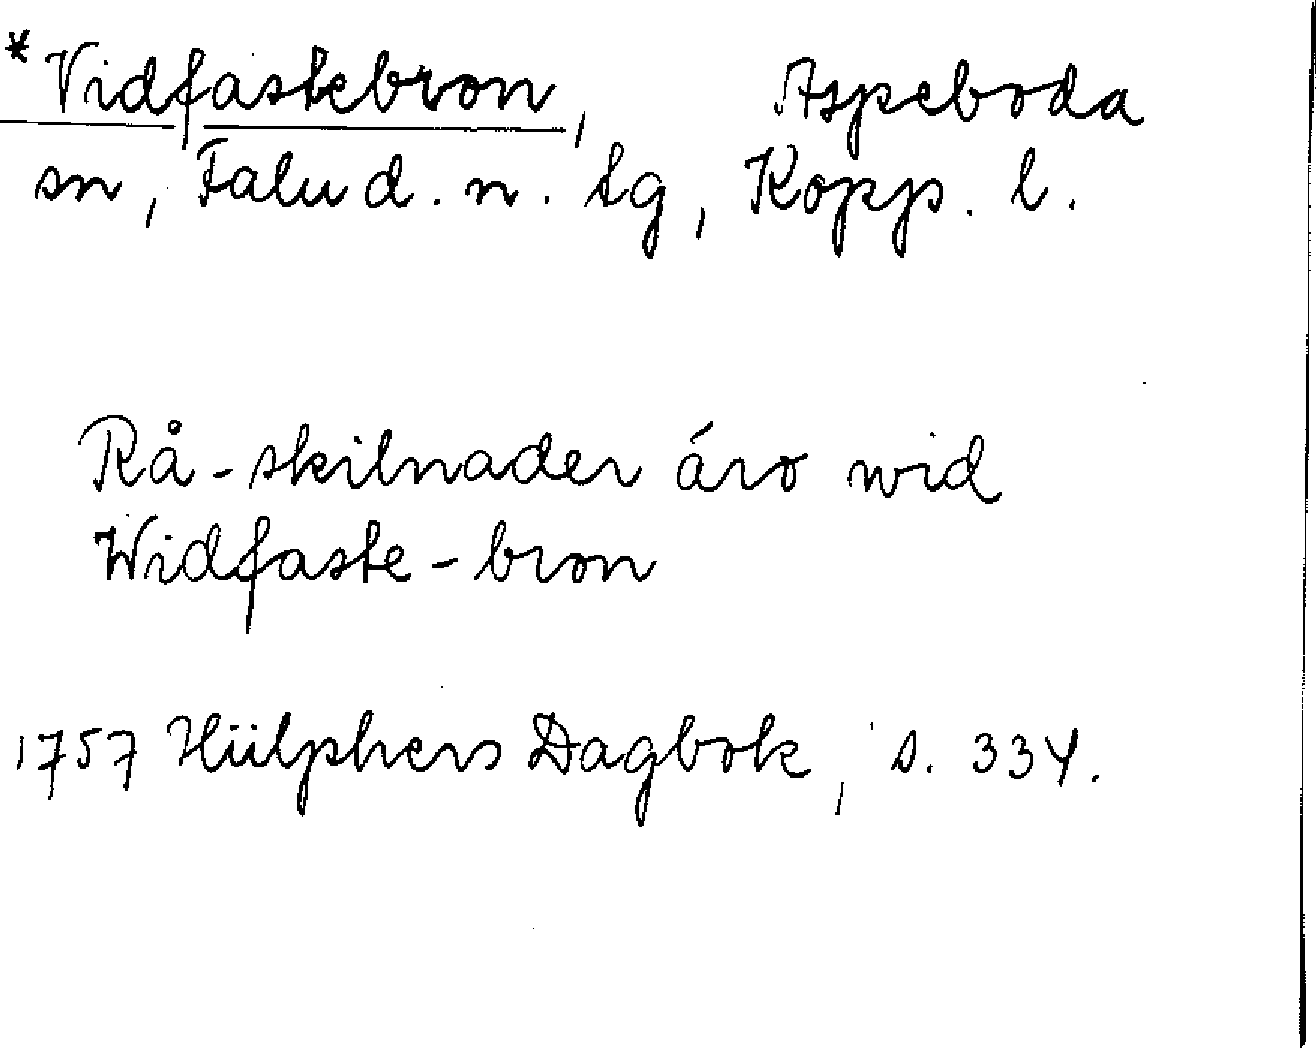 *Vidfastebron, Aspeboda
sn, Falu d. n. tg, Kopp. l.
Rå-skilnader áro wid
Widfaste-bron
1757 Hülphers Dagbok, s. 334.